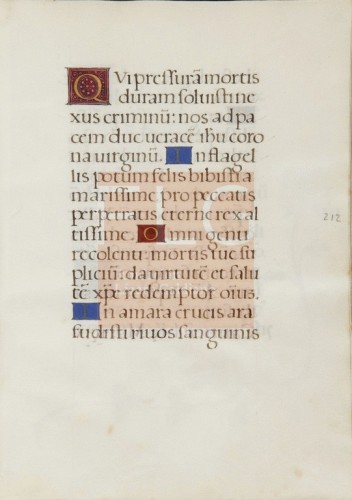 Qui pressurā mortis
duram soluisti ne
xus criminū: nos ad pa
cem duc ueracē ihu coro
na uirginū. In flagel
lis potum felis bibisti a
marissime pro peccatis
perpetratis eterne rex al
tissime. Omni genti
recolenti: mortis tue su
pliciū: da uirtutē et salu
tē xpē redemptor oīus.
In amara crucis ara
fudisti riuos sanguinis
212
TLC